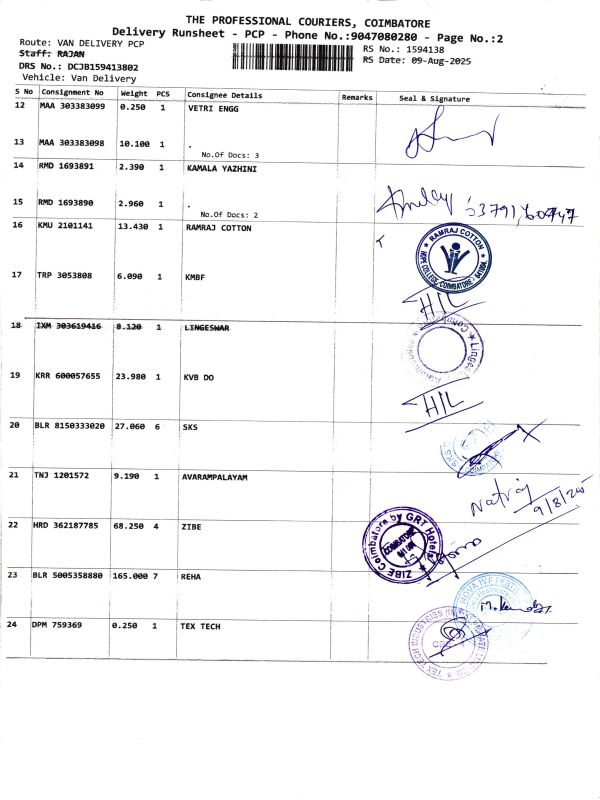 THE PROFESSIONAL COURIERS, COIMBATORE
Delivery Runsheet - PCP - Phone No.:9047080280 - Page No.:2
Route: VAN DELIVERY PCP
RS No.: 1594138
Staff: RAJAN
RS Date: 09-Aug-2025
DRS No.: DCJB159413802
Vehicle: Van Delivery
S No Consignment No Weight PCS Consignee Details Remarks Seal & Signature
12 MAA 303383099 0.250 1 VETRI ENGG
13 MAA 303383098 10.100 1 .
No.Of Docs: 3
14 RMD 1693891 2.390 1 KAMALA YAZHINI
15 RMD 1693890 2.960 1 .
No.Of Docs: 2
16 KMU 2101141 13.430 1 RAMRAJ COTTON
RAMRAJ COTTON
HOPE COLLEGE, COIMBATORE
17 TRP 3053808 6.090 1 KMBF
H/L
18 IXM 303619416 8.120 1 LINGESWAR
19 KRR 600057655 23.980 1 KVB DO
H/L
20 BLR 8150333020 27.060 6 SKS
SKS
21 TNJ 1201572 9.190 1 AVARAMPALAYAM
Natraj
9/8/25
22 HRD 362187785 68.250 4 ZIBE
ZIBE Coimbatore by GRT Hotels
COIMBATORE
23 BLR 5005358880 165.000 7 REHA
24 DPM 759369 0.250 1 TEX TECH
TEX TECH INDUSTRIES